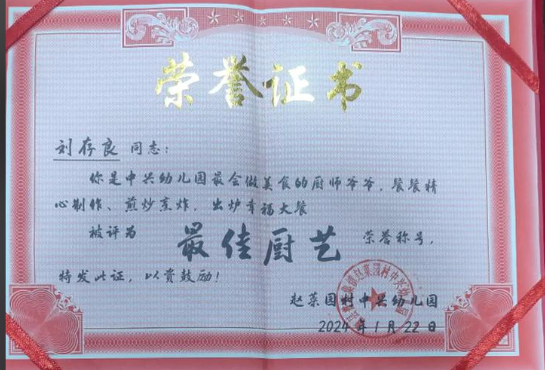 荣誉证书
刘存良 同志:
你是中兴幼儿园最会做美食的厨师爷爷,餐餐精
心制作、煎炒烹炸,出炉幸福大餐
被评为 最佳厨艺 荣誉称号,
特发此证,以资鼓励!
赵菜园村中兴幼儿园
2024年1月22日